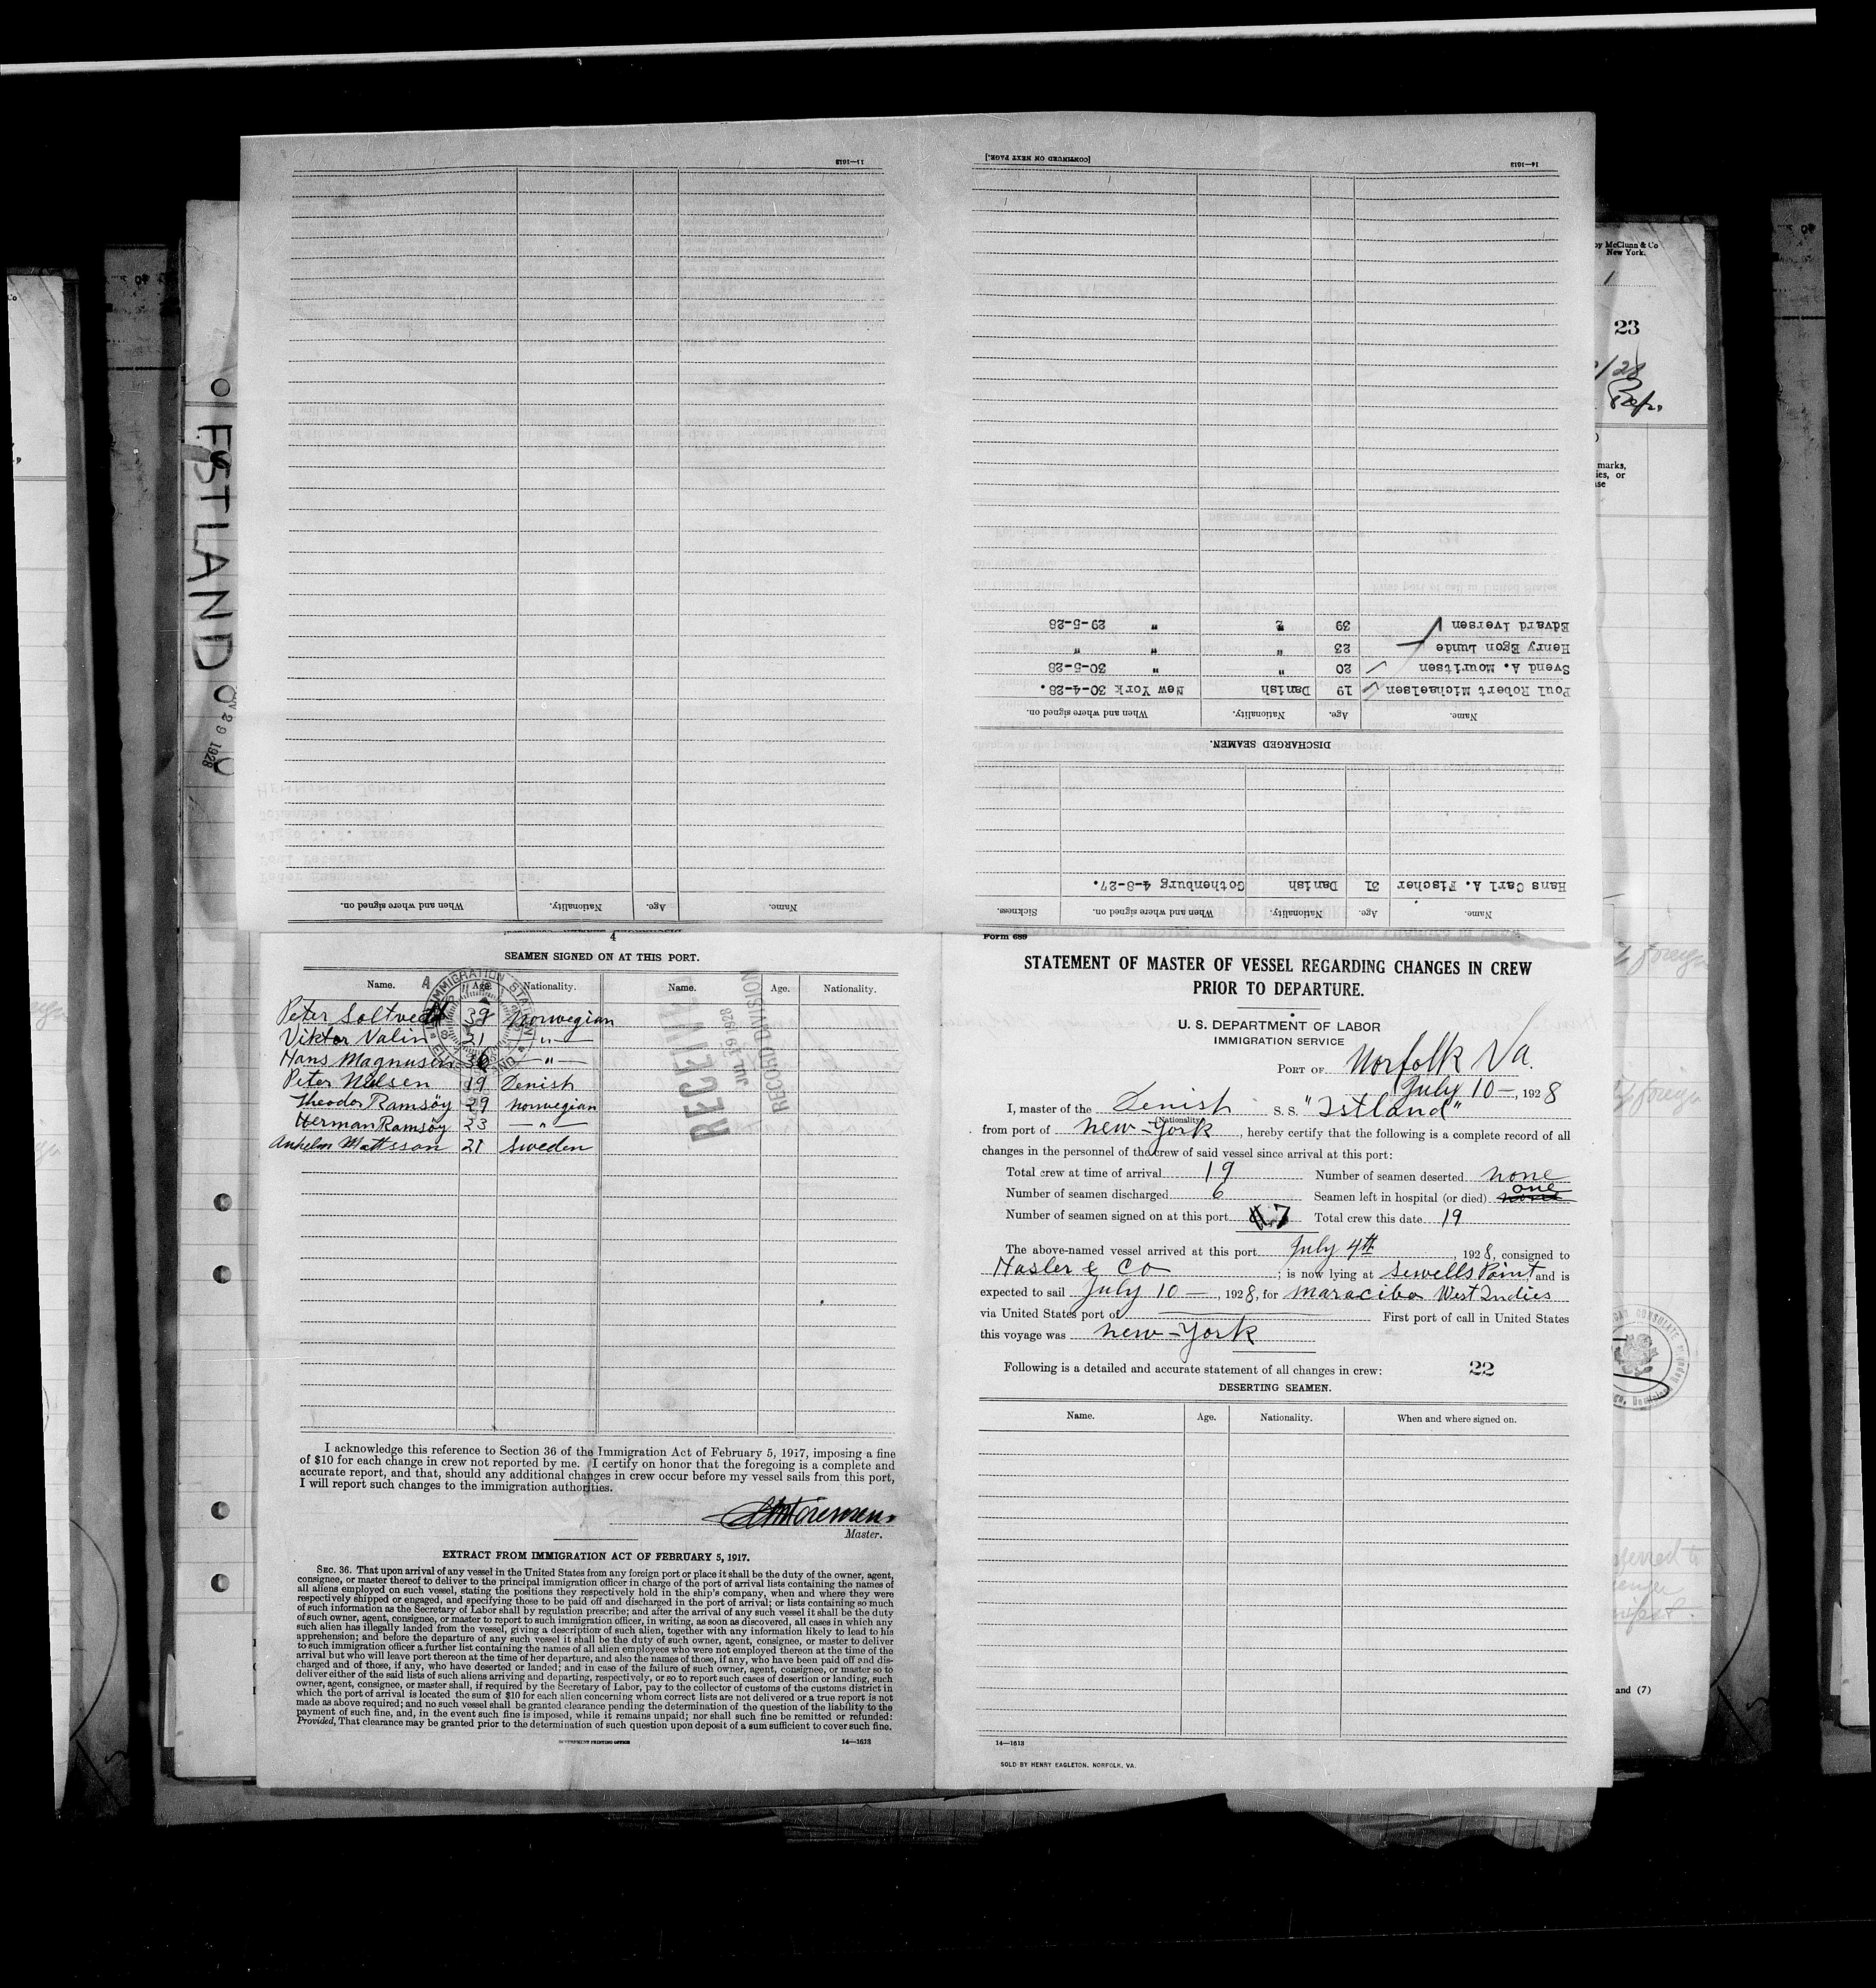 STATEMENT OF MASTER OF VESSEL REGARDING CHANGES IN CREW
PRIOR TO DEPARTURE.
Form 689
U. S. DEPARTMENT OF LABOR
IMMIGRATION SERVICE
PORT OF Norfolk Va.
July 10 —, 1928
I, master of the Denish S. S. "Istland"
(Nationality)
from port of new-York, hereby certify that the following is a complete record of all
changes in the personnel of the crew of said vessel since arrival at this port:
Total crew at time of arrival 19 Number of seamen deserted none
Number of seamen discharged 6 Seamen left in hospital (or died) one
Number of seamen signed on at this port 7 Total crew this date 19
The above-named vessel arrived at this port July 4th, 1928, consigned to
Hasler & Co; is now lying at Sewells Point, and is
expected to sail July 10 —, 1928, for Maracibo West Indies
via United States port of First port of call in United States
this voyage was new-York
Following is a detailed and accurate statement of all changes in crew: 22
DESERTING SEAMEN.
Name. Age. Nationality. When and where signed on.
14—1613
SOLD BY HENRY EAGLETON, NORFOLK, VA.
Name. Age. Nationality. When and where signed on. Sickness.
Hans Carl A. Fischer 31 Danish Gothenburg 4-8-27.
DISCHARGED SEAMEN.
Name. Age. Nationality. When and where signed on.
Poul Robert Michaelsen 19 Danish New York 30-4-28.
Svend A. Mouritsen 20 " " 30-5-28
Henry Egon Lunde 23 " " "
Edvard Iversen 39 " " 29-5-28
14—1613 [CONTINUED ON NEXT PAGE.]
Name. Age. Nationality. When and where signed on.
11—1613
4
SEAMEN SIGNED ON AT THIS PORT.
Name. Age. Nationality. Name. Age. Nationality.
Peter Soltvedt 39 Norwegian
Viktor Valin 21 — " —
Hans Magnusen — " —
Peter Nielsen 19 Denish
Theodor Ramsöy 29 norwegian
Herman Ramsöy 23 — " —
Anhelm Mattsson 21 Sweden
RECEIVED
JUL 19 1928
RECORD DIVISION
IMMIGRATION STATION
I acknowledge this reference to Section 36 of the Immigration Act of February 5, 1917, imposing a fine
of $10 for each change in crew not reported by me. I certify on honor that the foregoing is a complete and
accurate report, and that, should any additional changes in crew occur before my vessel sails from this port,
I will report such changes to the immigration authorities.
Master.
EXTRACT FROM IMMIGRATION ACT OF FEBRUARY 5, 1917.
SEC. 36. That upon arrival of any vessel in the United States from any foreign port or place it shall be the duty of the owner, agent,
consignee, or master thereof to deliver to the principal immigration officer in charge of the port of arrival lists containing the names of
all aliens employed on such vessel, stating the positions they respectively hold in the ship's company, when and where they were
respectively shipped or engaged, and specifying those to be paid off and discharged in the port of arrival; or lists containing so much
of such information as the Secretary of Labor shall by regulation prescribe; and after the arrival of any such vessel it shall be the duty
of such owner, agent, consignee, or master to report to such immigration officer, in writing, as soon as discovered, all cases in which any
such alien has illegally landed from the vessel, giving a description of such alien, together with any information likely to lead to his
apprehension; and before the departure of any such vessel it shall be the duty of such owner, agent, consignee, or master to deliver
to such immigration officer a further list containing the names of all alien employees who were not employed thereon at the time of the
arrival but who will leave port thereon at the time of her departure, and also the names of those, if any, who have been paid off and dis-
charged and of those, if any, who have deserted or landed; and in case of the failure of such owner, agent, consignee, or master so to
deliver either of the said lists of such aliens arriving and departing, respectively, or so to report such cases of desertion or landing, such
owner, agent, consignee, or master shall, if required by the Secretary of Labor, pay to the collector of customs of the customs district in
which the port of arrival is located the sum of $10 for each alien concerning whom correct lists are not delivered or a true report is not
made as above required; and no such vessel shall be granted clearance pending the determination of the question of the liability to the
payment of such fine, and, in the event such fine is imposed, while it remains unpaid; nor shall such fine be remitted or refunded:
Provided, That clearance may be granted prior to the determination of such question upon deposit of a sum sufficient to cover such fine.
GOVERNMENT PRINTING OFFICE
14—1613
ESTLAND
29 1928
by McClunn & Co
New York.
23
marks,
ies, or
and (7)